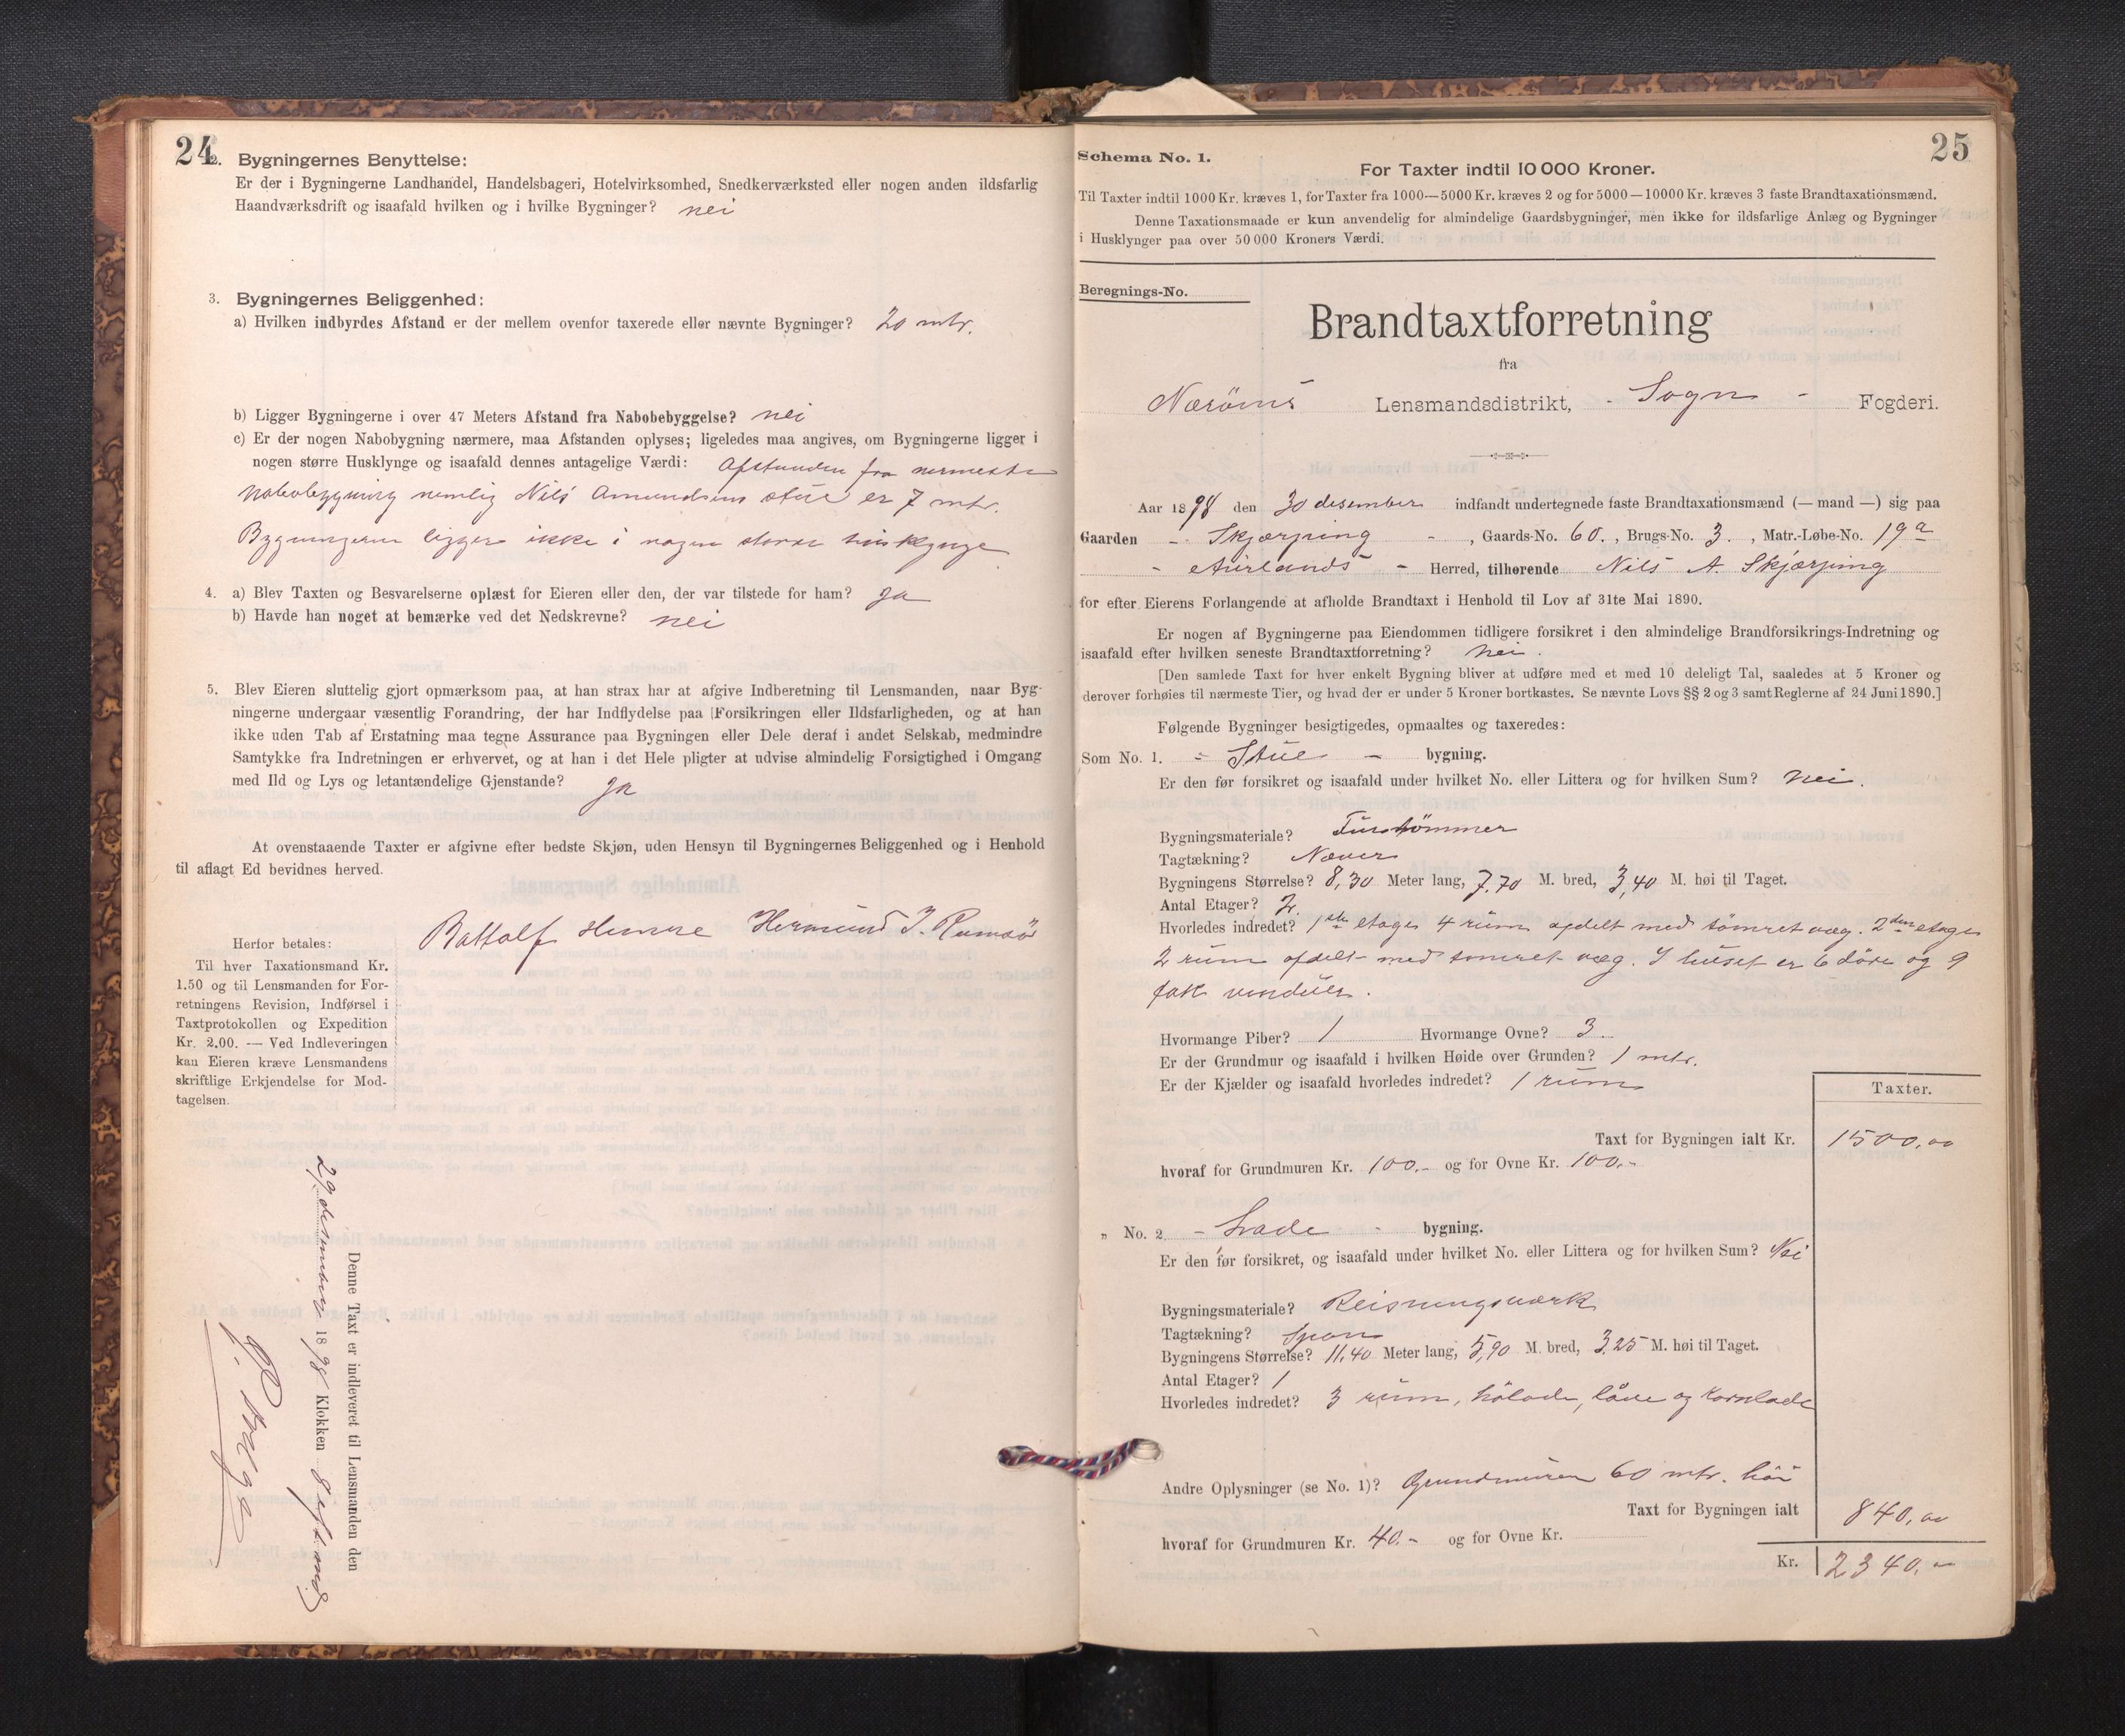 24
2. Bygningernes Benyttelse:
Er der i Bygningerne Landhandel, Handelsbageri, Hotelvirksomhed, Snedkerværksted eller nogen anden ildsfarlig
Haandværksdrift og isaafald hvilken og i hvilke Bygninger? nei
3. Bygningernes Beliggenhed:
a) Hvilken indbyrdes Afstand er der mellem ovenfor taxerede eller nævnte Bygninger? 20 mtr.
b) Ligger Bygningerne i over 47 Meters Afstand fra Nabobebyggelse? nei
c) Er der nogen Nabobygning nærmere, maa Afstanden oplyses; ligeledes maa angives, om Bygningerne ligger i
nogen større Husklynge og isaafald dennes antagelige Værdi: Afstanden fra nærmeste
nabobygning nemlig Nils Amundsens stue er 7 mtr.
Bygningerne ligger ikke i nogen større husklynge
4. a) Blev Taxten og Besvarelserne oplæst for Eieren eller den, der var tilstede for ham? ja
b) Havde han noget at bemærke ved det Nedskrevne? nei
5. Blev Eieren sluttelig gjort opmærksom paa, at han strax har at afgive Indberetning til Lensmanden, naar Byg-
ningerne undergaar væsentlig Forandring, der har Indflydelse paa Forsikringen eller Ildsfarligheden, og at han
ikke uden Tab af Erstatning maa tegne Assurance paa Bygningen eller Dele deraf i andet Selskab, medmindre
Samtykke fra Indretningen er erhvervet, og at han i det Hele pligter at udvise almindelig Forsigtighed i Omgang
med Ild og Lys og letantændelige Gjenstande? ja
At ovenstaaende Taxter er afgivne efter bedste Skjøn, uden Hensyn til Bygningernes Beliggenhed og i Henhold
til aflagt Ed bevidnes herved.
Hermund J.
Herfor betales:
Til hver Taxationsmand Kr.
1.50 og til Lensmanden for For-
retningens Revision, Indførsel i
Taxtprotokollen og Expedition
Kr. 2.00. — Ved Indleveringen
kan Eieren kræve Lensmandens
skriftlige Erkjendelse for Mod-
tagelsen.
Denne Taxt er indleveret til Lensmanden den
29 desember 1898 Klokken 8 eft.
25
Schema No. 1.
For Taxter indtil 10 000 Kroner.
Til Taxter indtil 1000 Kr. kræves 1, for Taxter fra 1000—5000 Kr. kræves 2 og for 5000—10000 Kr. kræves 3 faste Brandtaxationsmænd.
Denne Taxationsmaade er kun anvendelig for almindelige Gaardsbygninger, men ikke for ildsfarlige Anlæg og Bygninger
i Husklynger paa over 50 000 Kroners Værdi.
Beregnings-No.
Brandtaxtforretning
fra
Nærøens Lensmandsdistrikt, - Sogn - Fogderi.
Aar 1898 den 30 desember indfandt undertegnede faste Brandtaxationsmænd (— mand —) sig paa
Gaarden - Skjærping - , Gaards-No. 60. , Brugs-No. 3. , Matr.-Løbe-No. 19a
- Aurlands - Herred, tilhørende Nils A. Skjærping
for efter Eierens Forlangende at afholde Brandtaxt i Henhold til Lov af 31te Mai 1890.
Er nogen af Bygningerne paa Eiendommen tidligere forsikret i den almindelige Brandforsikrings-Indretning og
isaafald efter hvilken seneste Brandtaxtforretning? Nei.
[Den samlede Taxt for hver enkelt Bygning bliver at udføre med et med 10 deleligt Tal, saaledes at 5 Kroner og
derover forhøies til nærmeste Tier, og hvad der er under 5 Kroner bortkastes. Se nævnte Lovs §§ 2 og 3 samt Reglerne af 24 Juni 1890.]
Følgende Bygninger besigtigedes, opmaaltes og taxeredes:
Som No. 1. - Stue - bygning.
Er den før forsikret og isaafald under hvilket No. eller Littera og for hvilken Sum? Nei.
Bygningsmateriale? Furutømmer
Tagtækning? Næver
Bygningens Størrelse? 8,30 Meter lang, 7,70 M. bred, 3,40 M. høi til Taget.
Antal Etager? 2.
Hvorledes indredet? 1ste etage 4 rum afdelt med tømret væg. 2den etage
2 rum afdelt med tømret væg. I huset er 6 døre og 9
fak vinduer.
Hvormange Piber? 1 Hvormange Ovne? 3
Er der Grundmur og isaafald i hvilken Høide over Grunden? 1 mtr.
Er der Kjælder og isaafald hvorledes indredet? 1 rum
Taxter.
Taxt for Bygningen ialt Kr. 1500,00
hvoraf for Grundmuren Kr. 100.- og for Ovne Kr. 100.-
„ No. 2. - Lade - bygning.
Er den før forsikret, og isaafald under hvilket No. eller Littera og for hvilken Sum? Nei
Bygningsmateriale? Reisningsværk
Tagtækning? Spon
Bygningens Størrelse? 11,40 Meter lang, 5,90 M. bred, 3,25 M. høi til Taget.
Antal Etager? 1
Hvorledes indredet? 3 rum, hølade, låve og kornlade
Andre Oplysninger (se No. 1)? Grundmuren 60 mtr. høi
Taxt for Bygningen ialt 840,00
hvoraf for Grundmuren Kr. 40.- og for Ovne Kr.
Kr. 2340,-